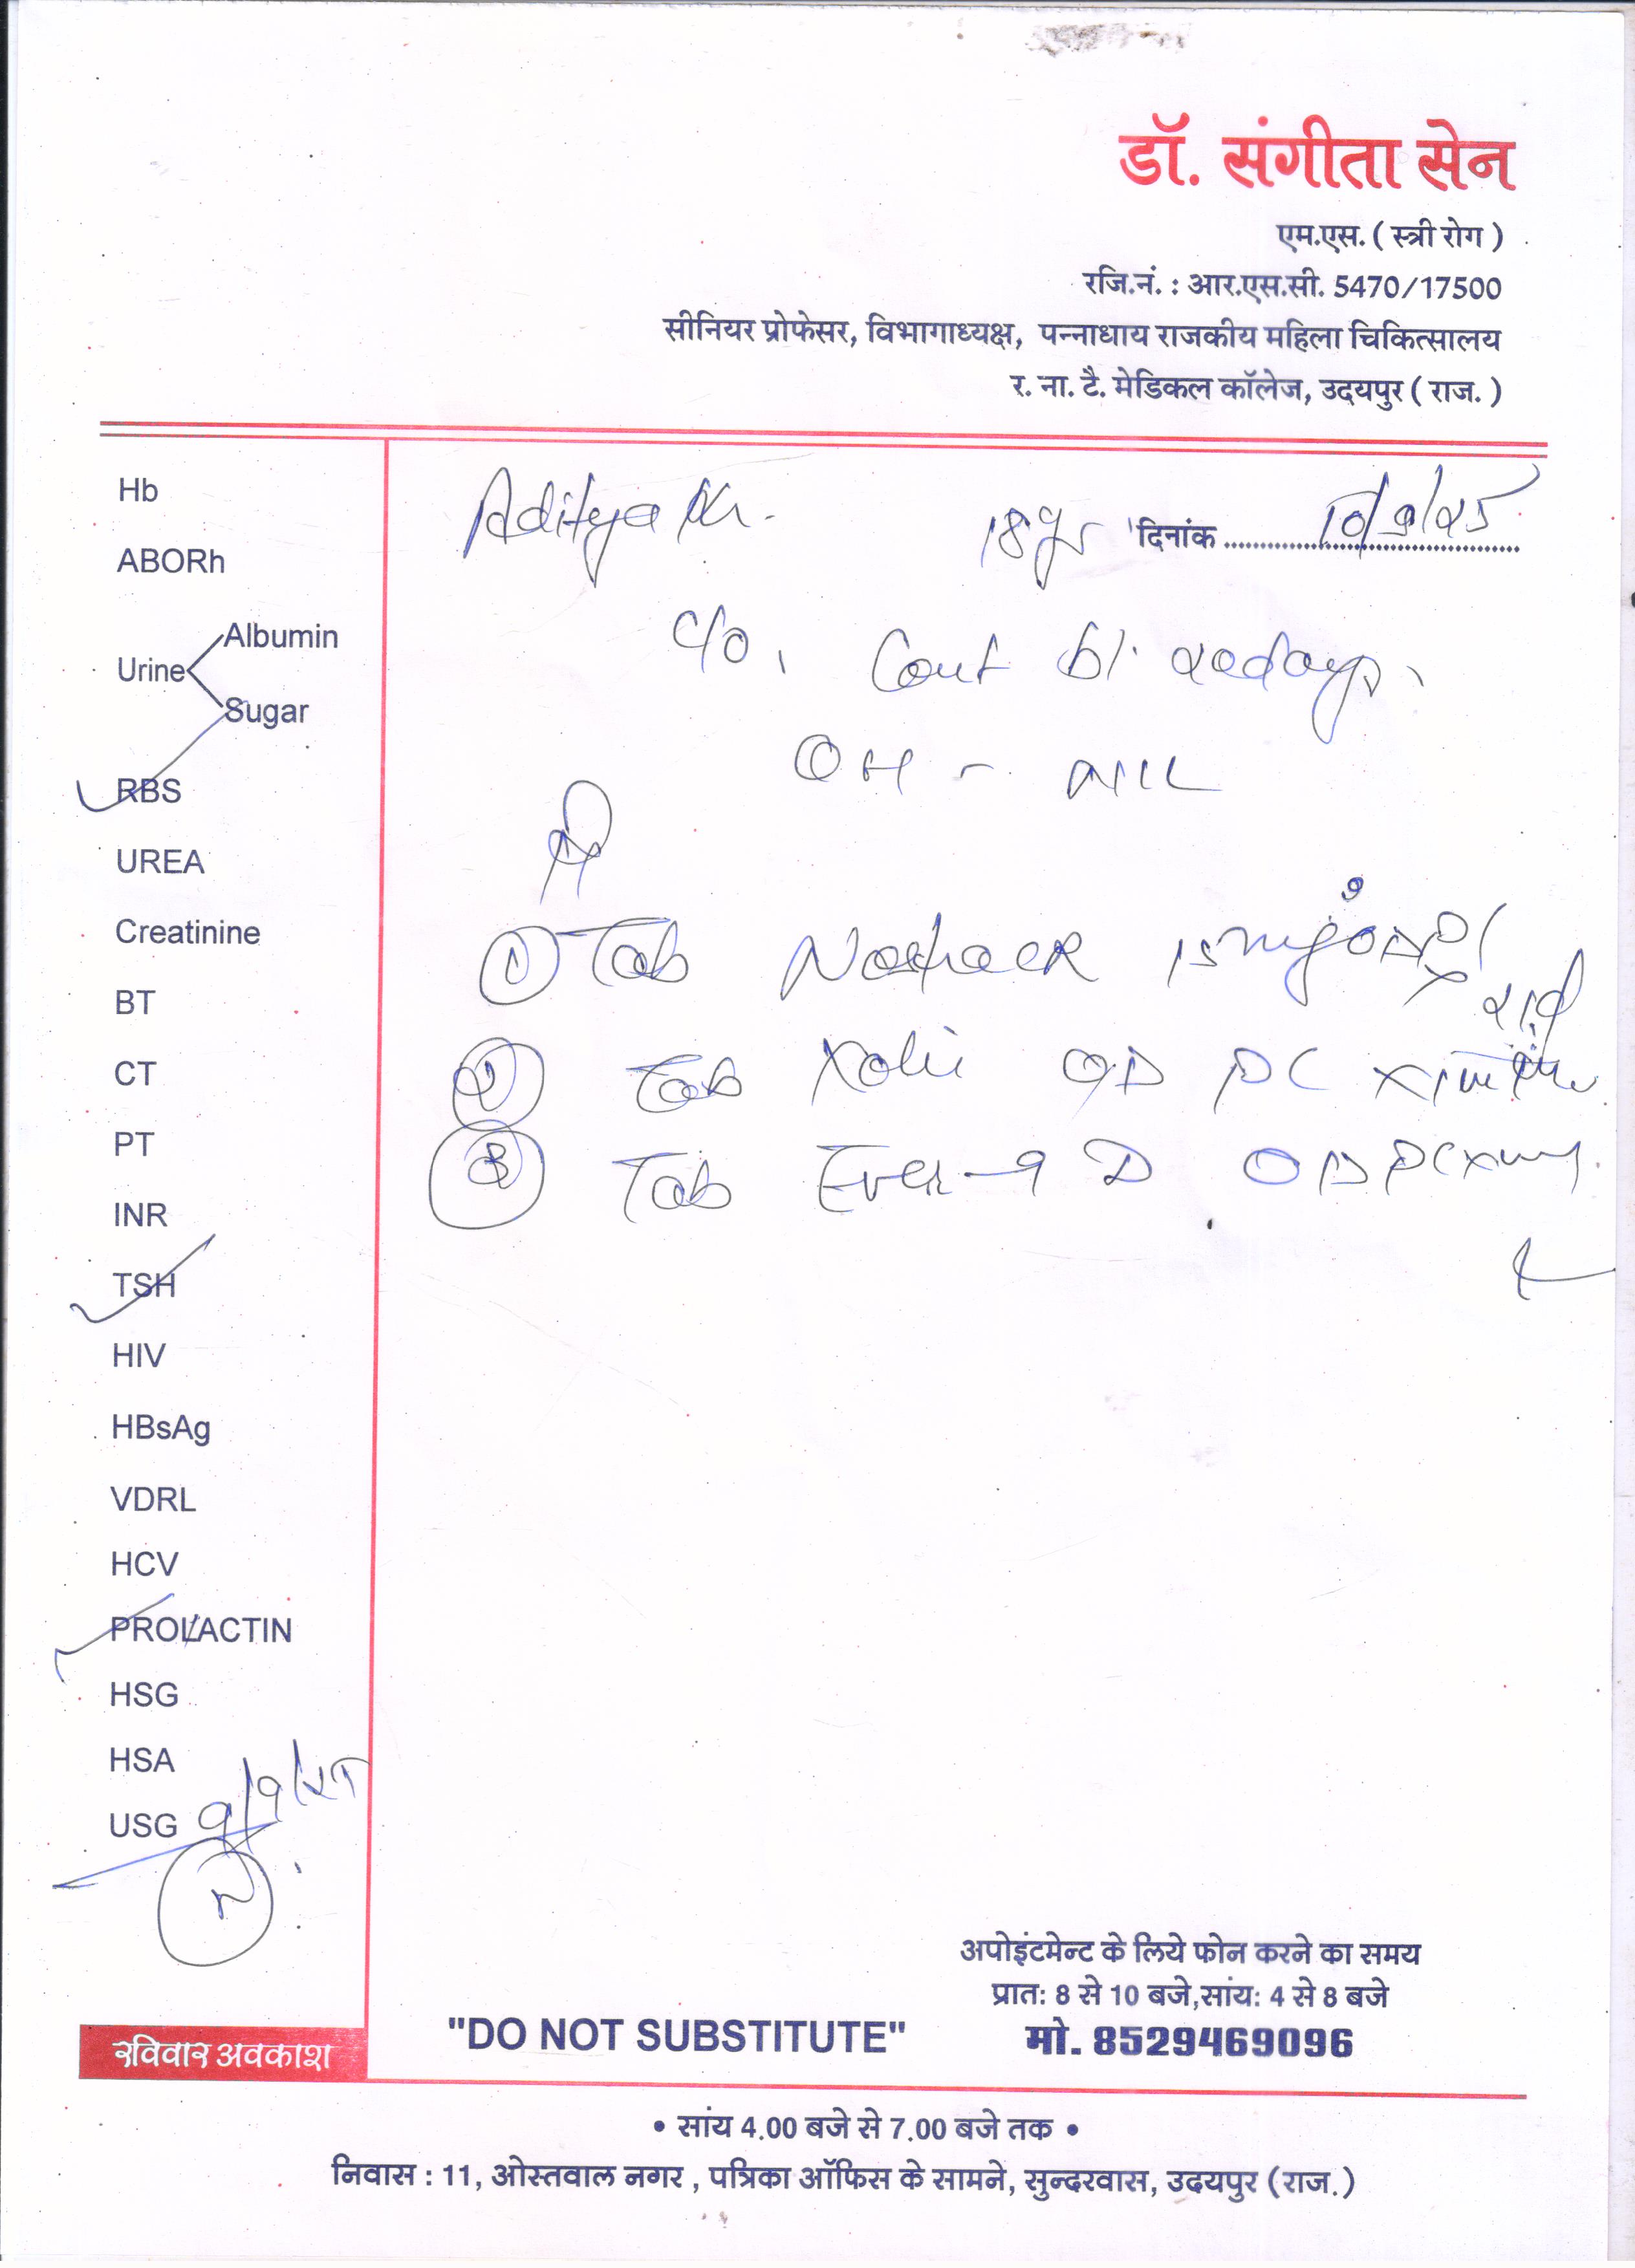 डॉ. संगीता सेन
एम.एस. ( स्त्री रोग )
रजि.नं. : आर.एस.सी. 5470/17500
सीनियर प्रोफेसर, विभागाध्यक्ष, पन्नाधाय राजकीय महिला चिकित्सालय
र. ना. टै. मेडिकल कॉलेज, उदयपुर ( राज. )
Aditya 18yr दिनांक 10/9/25
C/O.
OH - NIL
① Tab 15mg
② Tab OD PC
③ Tab OD PC
Hb
ABORh
Urine
Albumin
Sugar
RBS
UREA
Creatinine
BT
CT
PT
INR
TSH
HIV
HBsAg
VDRL
HCV
PROLACTIN
HSG
HSA
USG 9/9/25
N
रविवार अवकाश
"DO NOT SUBSTITUTE"
अपोइंटमेन्ट के लिये फोन करने का समय
प्रात: 8 से 10 बजे,सांय: 4 से 8 बजे
मो. 8529469096
• सांय 4.00 बजे से 7.00 बजे तक •
निवास : 11, ओस्तवाल नगर , पत्रिका ऑफिस के सामने, सुन्दरवास, उदयपुर (राज.)